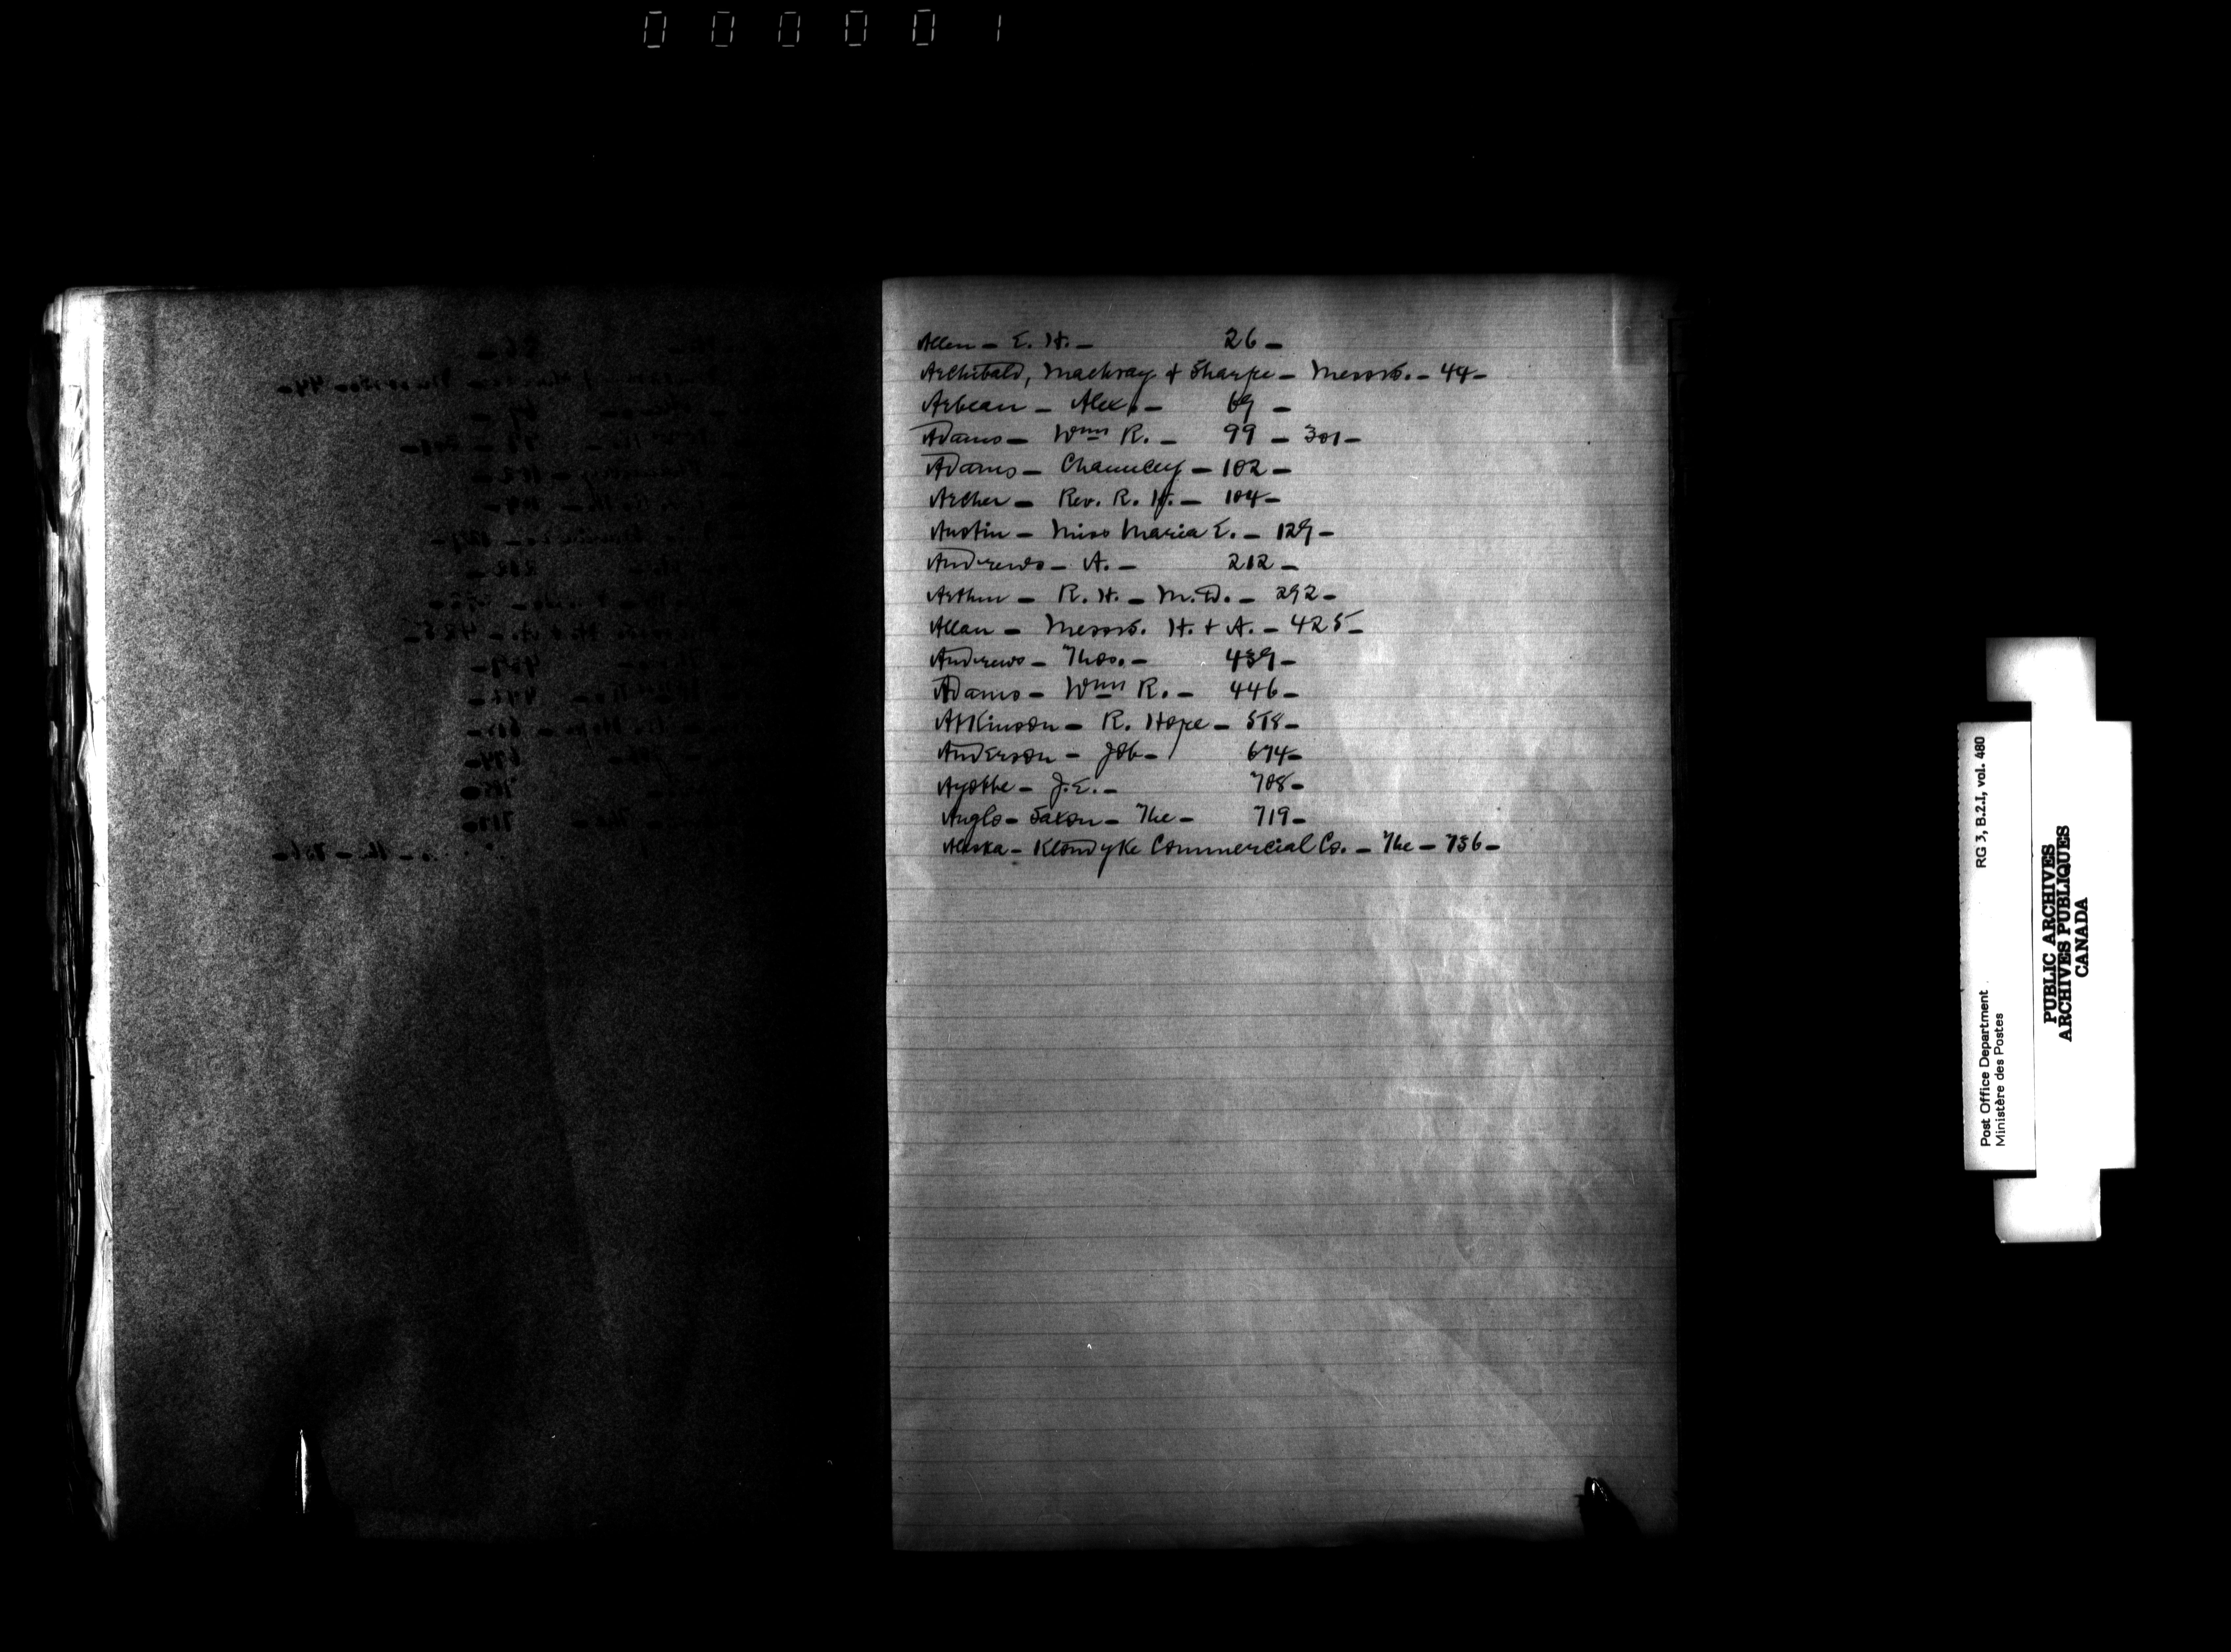 000001
Allen - E. H. - 26 -
Archibald, Machray & Sharpe - Messrs. - 44 -
Arbeau - Alex. - 69 -
Adams - Wm R. - 99 - 301 -
Adams - Chauncey - 102 -
Archer - Rev. R. H. - 104 -
Austin - Miss Maria E. - 129 -
Andrews - A. - 212 -
Arthur - R. H. - M.D. - 292 -
Allan - Messrs. H. & A. - 425 -
Andrews - Thos. - 439 -
Adams - Wm R. - 446 -
Atkinson - R. Hope - 518 -
Anderson - Job - 674 -
Ayotte - J. E. - 708 -
Anglo-Saxon - The - 719 -
Alaska-Klondyke Commercial Co. - The - 736 -
Post Office Department RG 3, B.2.I, vol. 480
Ministère des Postes
PUBLIC ARCHIVES
ARCHIVES PUBLIQUES
CANADA